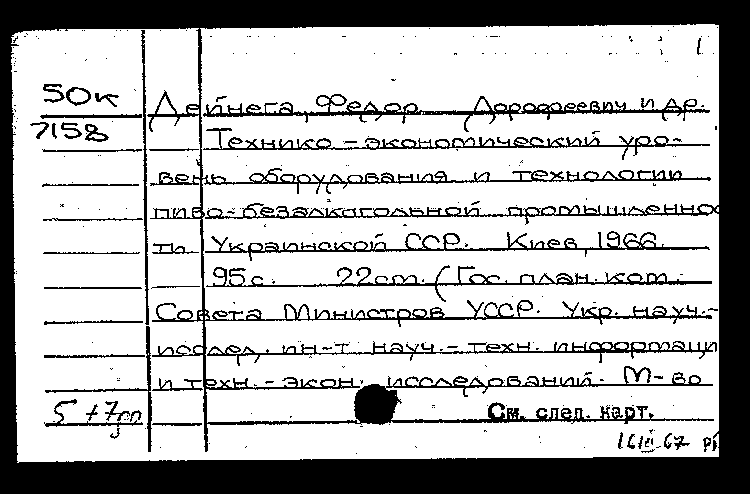 50к Дейнега, Федор Дорофеевич и др.
7158 Технико-экономический уро-
вень оборудования и технологии
пиво-безалкогольной промышленнос
ти Украинской ССР. Киев, 1966.
95 с. 22 см. (Гос. план. ком.
Совета Министров УССР. Укр. науч.-
исслед. ин-т науч.-техн. информаци
и техн.-экон. исследований. М-во
5 + 7 См. след. карт.
16 III 67